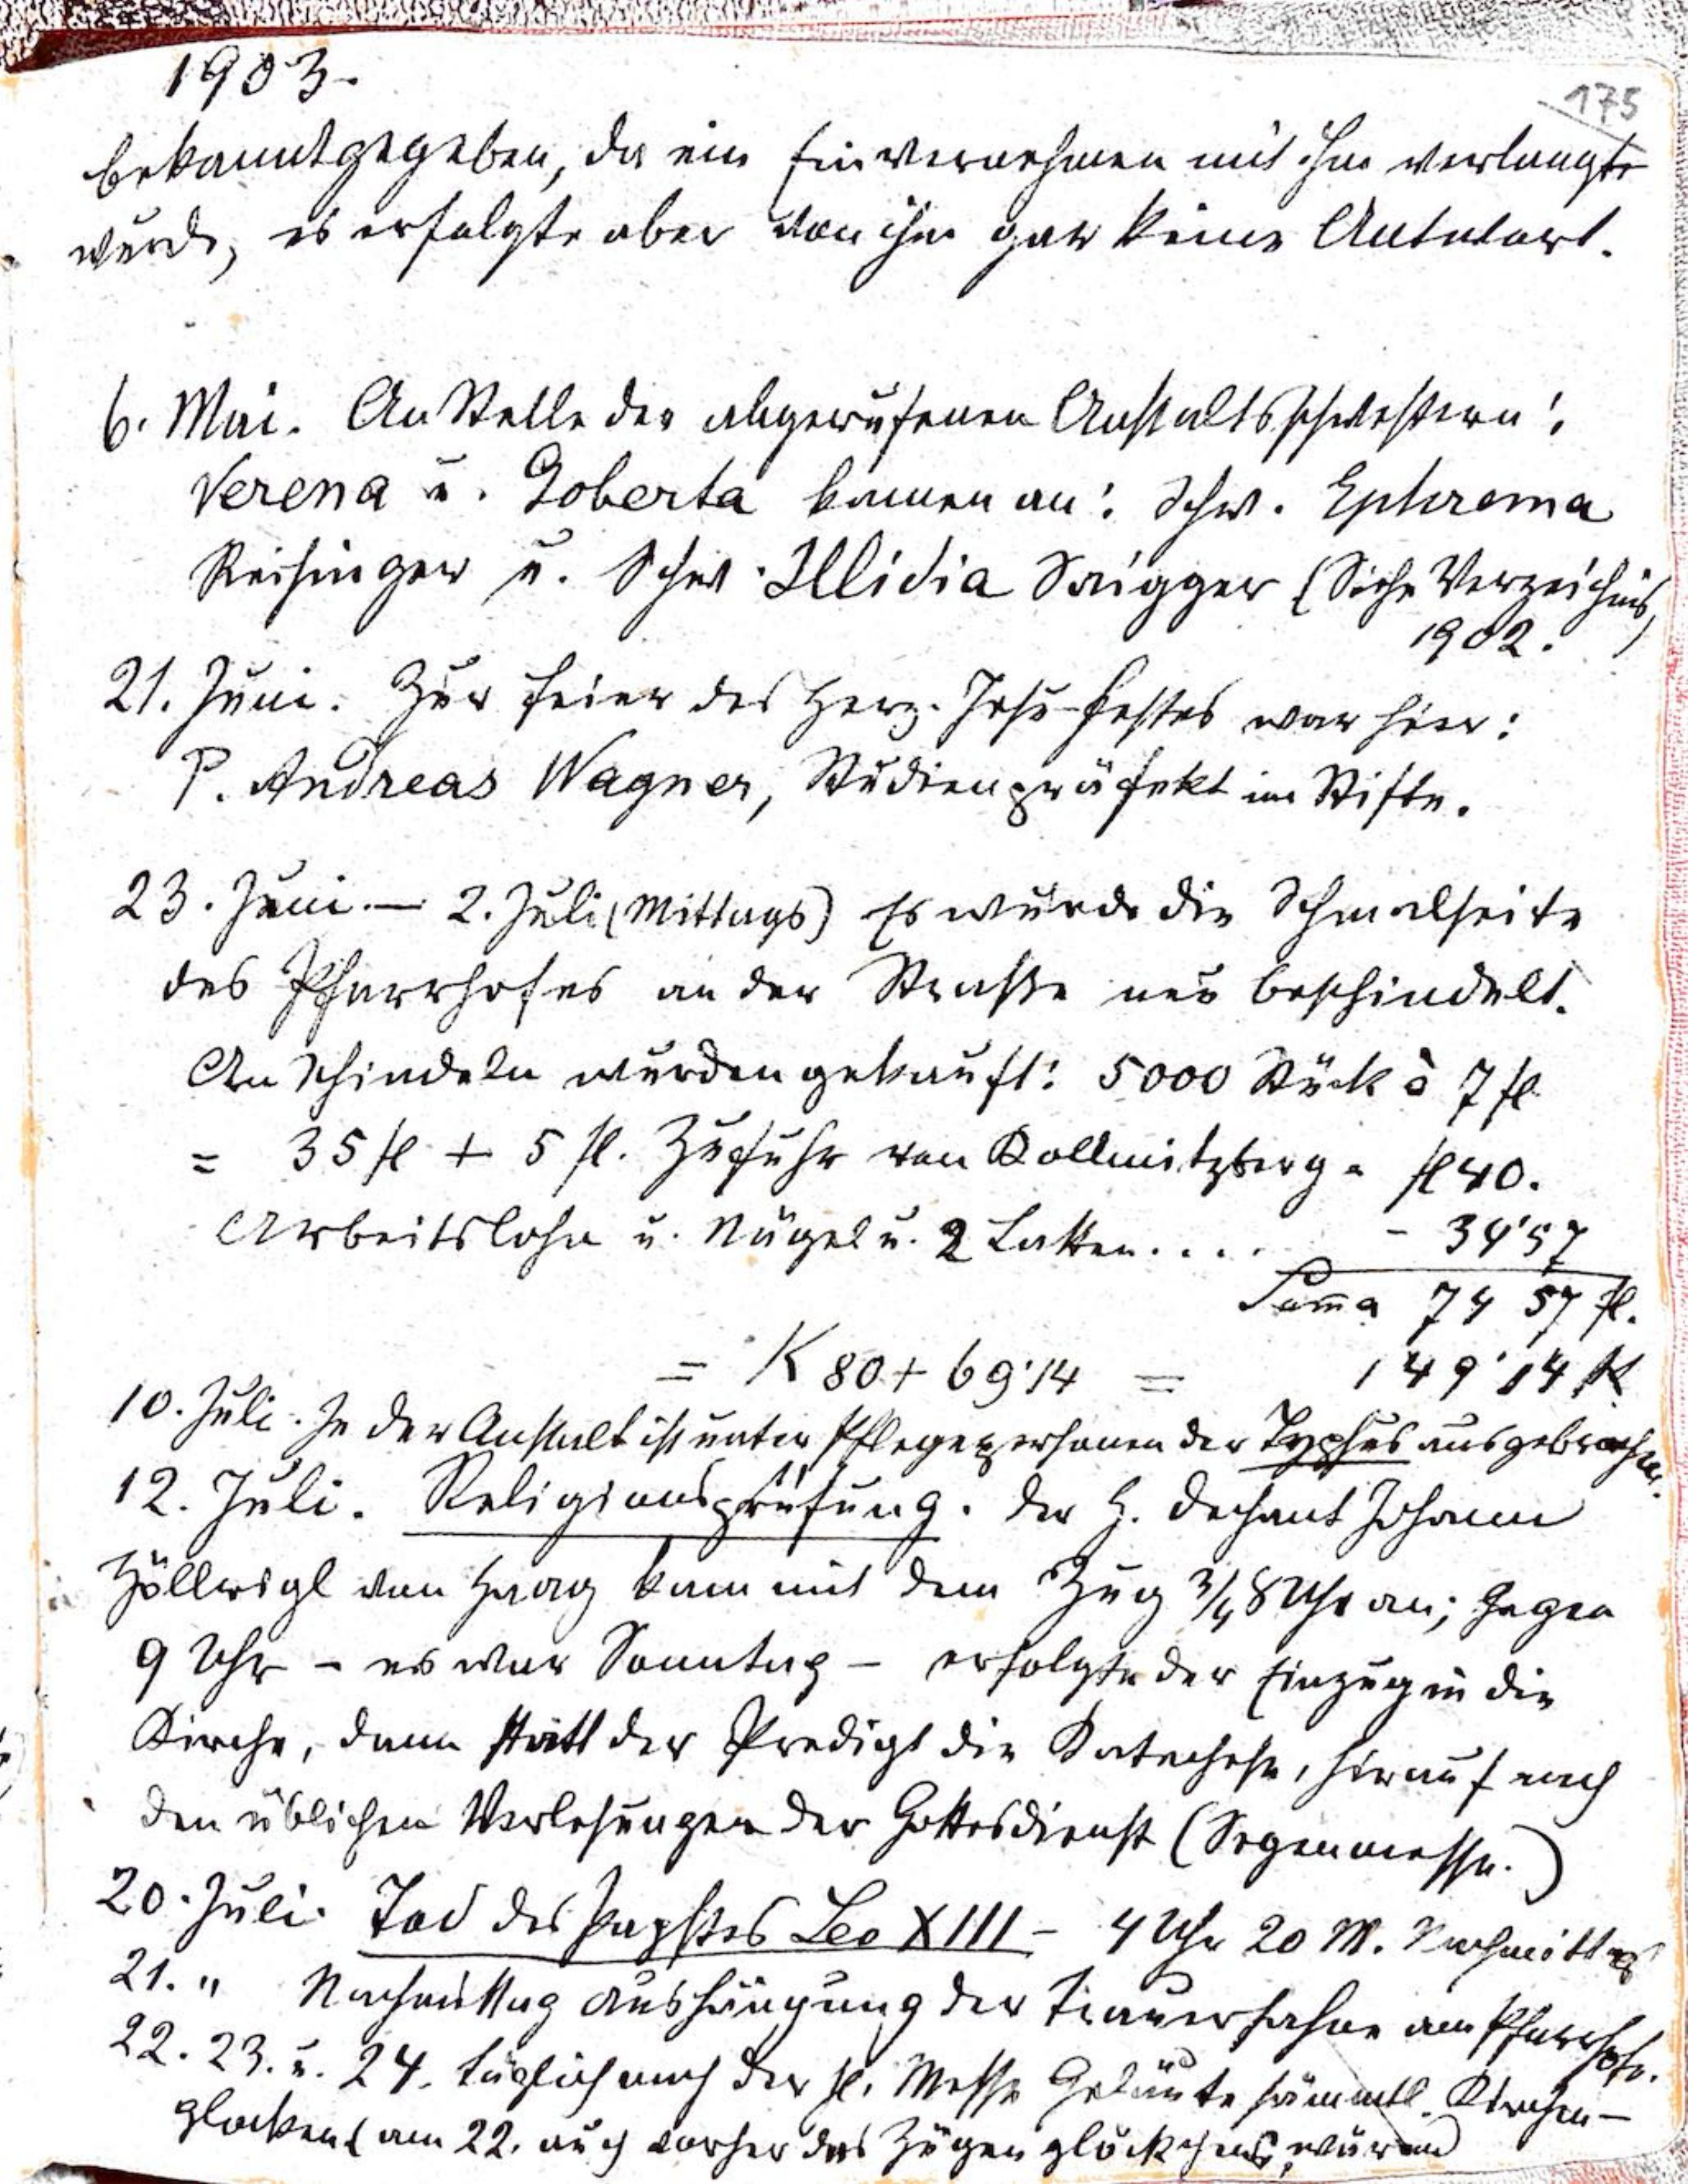 1903.
175
bekanntgegeben, da ein Einvernehmen mit ihm verlangt
wurde, es erfolgte aber von ihm gar keine Antwort.
6. Mai. An Stelle der abgerufenen Anstaltsschwestern:
Verena u. Goberta kamen an: Schw. Ephrema
Reisinger u. Schw. Illidia Saigger (Siehe Verzeichnis,
1902.)
21. Juni. Zur Feier des Herz-Jesu-Festes war hier:
P. Andreas Wagner, Studienpräfekt im Stifte.
23. Juni. — 2. Juli (Mittags) Es wurde die Schmalseite
des Pfarrhofes an der Straße neu beschindelt.
An Schindeln wurden gekauft: 5000 Stück à 7 fl
= 35 fl + 5 fl. Zufuhr von Kollmitzberg = fl 40.
Arbeitslohn u. Nägel u. 2 Latten.... - 34'57
Summa 74 57 fl.
= K 80 + 69'14 = 149'14 K
10. Juli. In der Anstalt ist unter Pflegepersonen der Typhus ausgebrochen.
12. Juli. Religionsprüfung. Der H. Dechant Johann
Höllrigl von Haag kam mit dem Zug 3/4 8 Uhr an; gegen
9 Uhr – es war Sonntag – erfolgte der Einzug in die
Kirche, dann statt der Predigt die Katechese, hierauf nach
den üblichen Verlesungen der Gottesdienst (Segenmesse.)
20. Juli. Tod des Papstes Leo XIII – 4 Uhr 20 M. Nachmittag
21. " Nachmittag Aushängung der Trauerfahne am Pfarrhofe.
22. 23. u. 24. täglich nach der hl. Messe Geläute sämmtl. Kirchen-
glocken (am 22. auch vorher das Zügenglöckchens, während